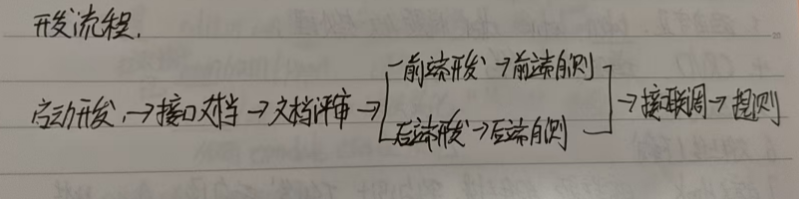 开发流程.
前端开发→前端自测
启动开发.→接口文档→文档评审→ →接联调→提测
后端开发→后端自测